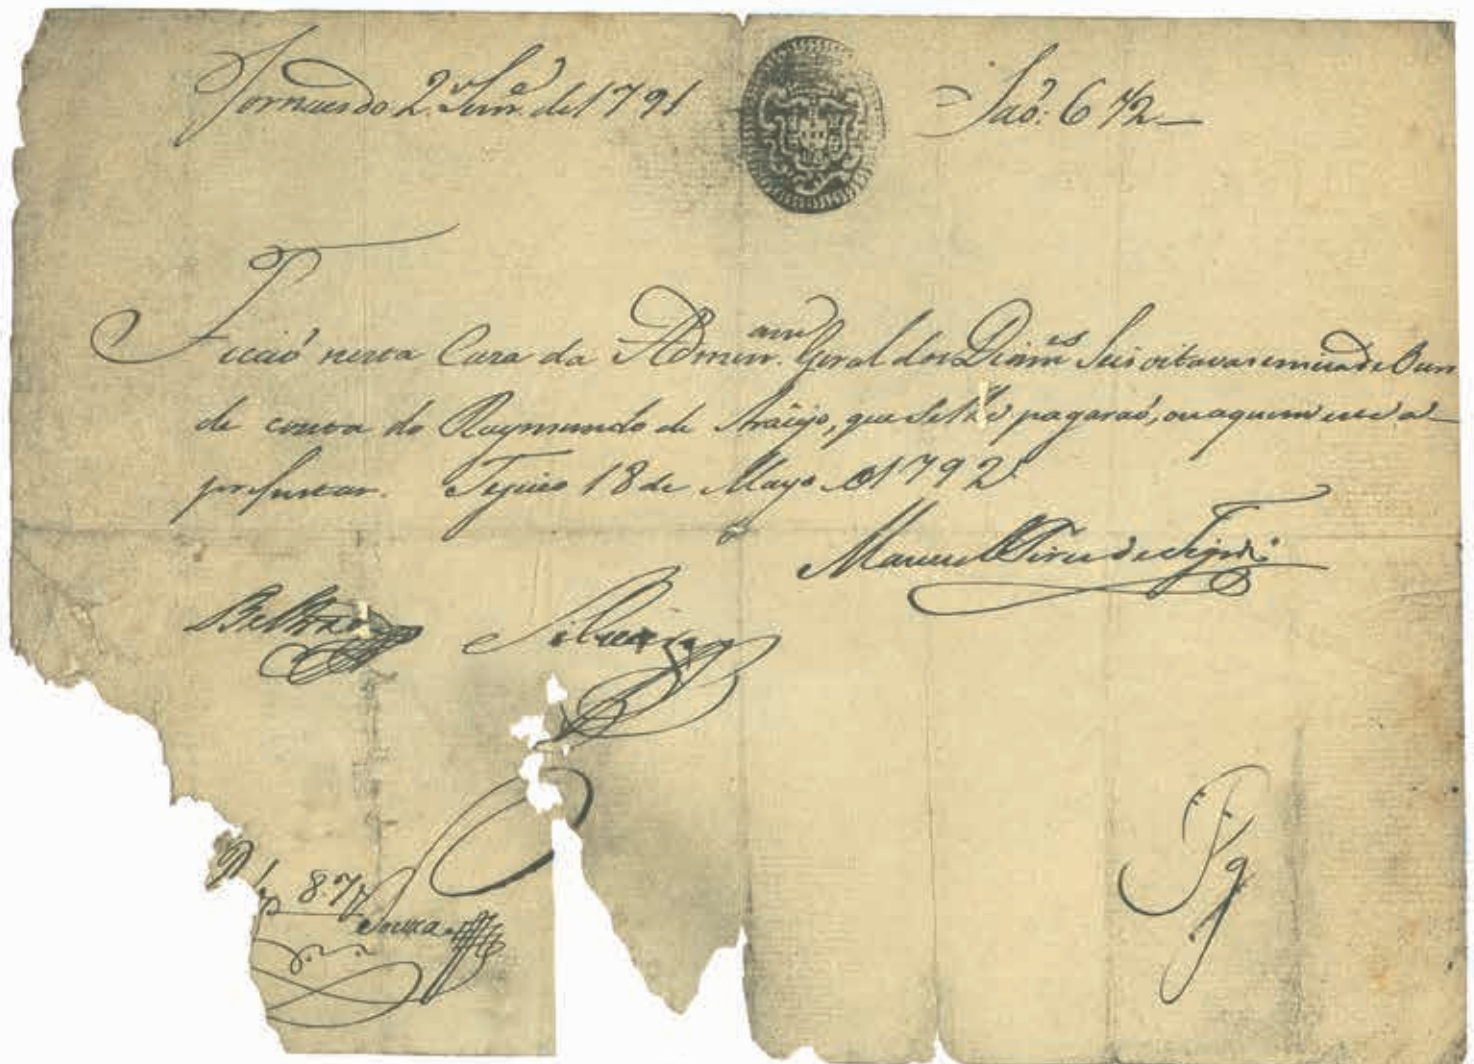 Jornaes do 2.º Sem.e de 1791
Saõ: 6 1/2
Ficaõ nesta Caza da Admin.am Geral dos Diam.es Seis oitavas e meia de Ouro
de conta do Raymundo de Araujo, que Se lhe pagaraõ, ou a quem esta a-
prezentar. Tejuco 18 de Mayo de 1792
Beltraõ Silveira
8.77
Souza
Pg